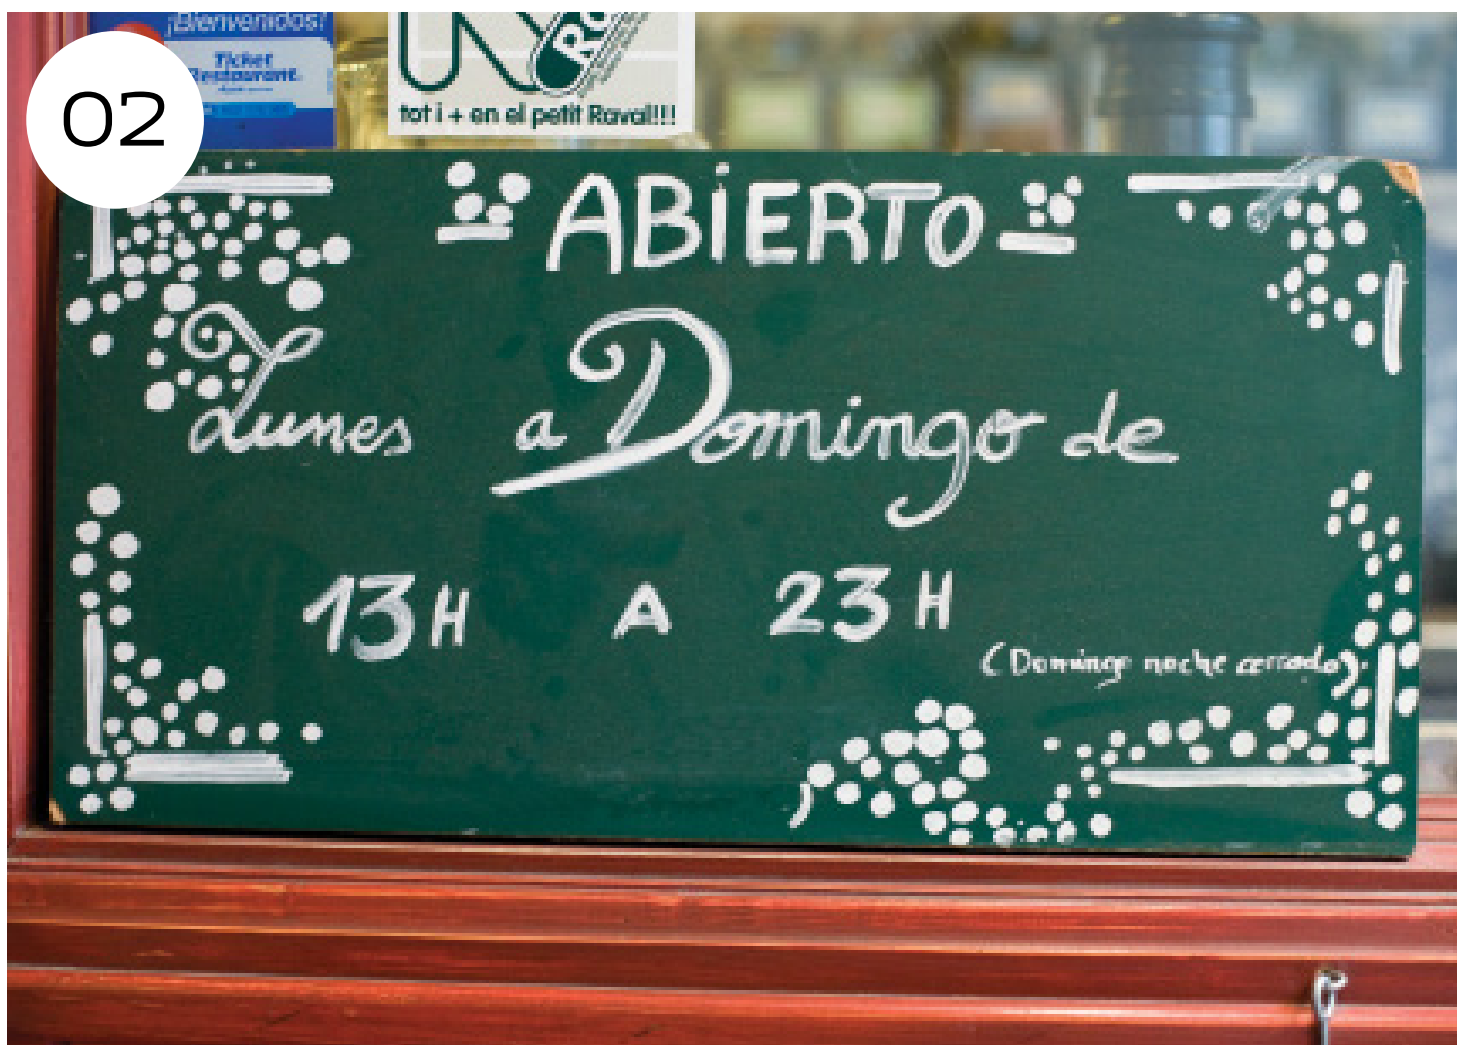 ¡Bienvenidos!
Ticket
Restaurant.
02
tot i + en el petit Raval!!!
ABiERTO
Lunes a Domingo de
13H A 23H
(Domingo noche cerrado)